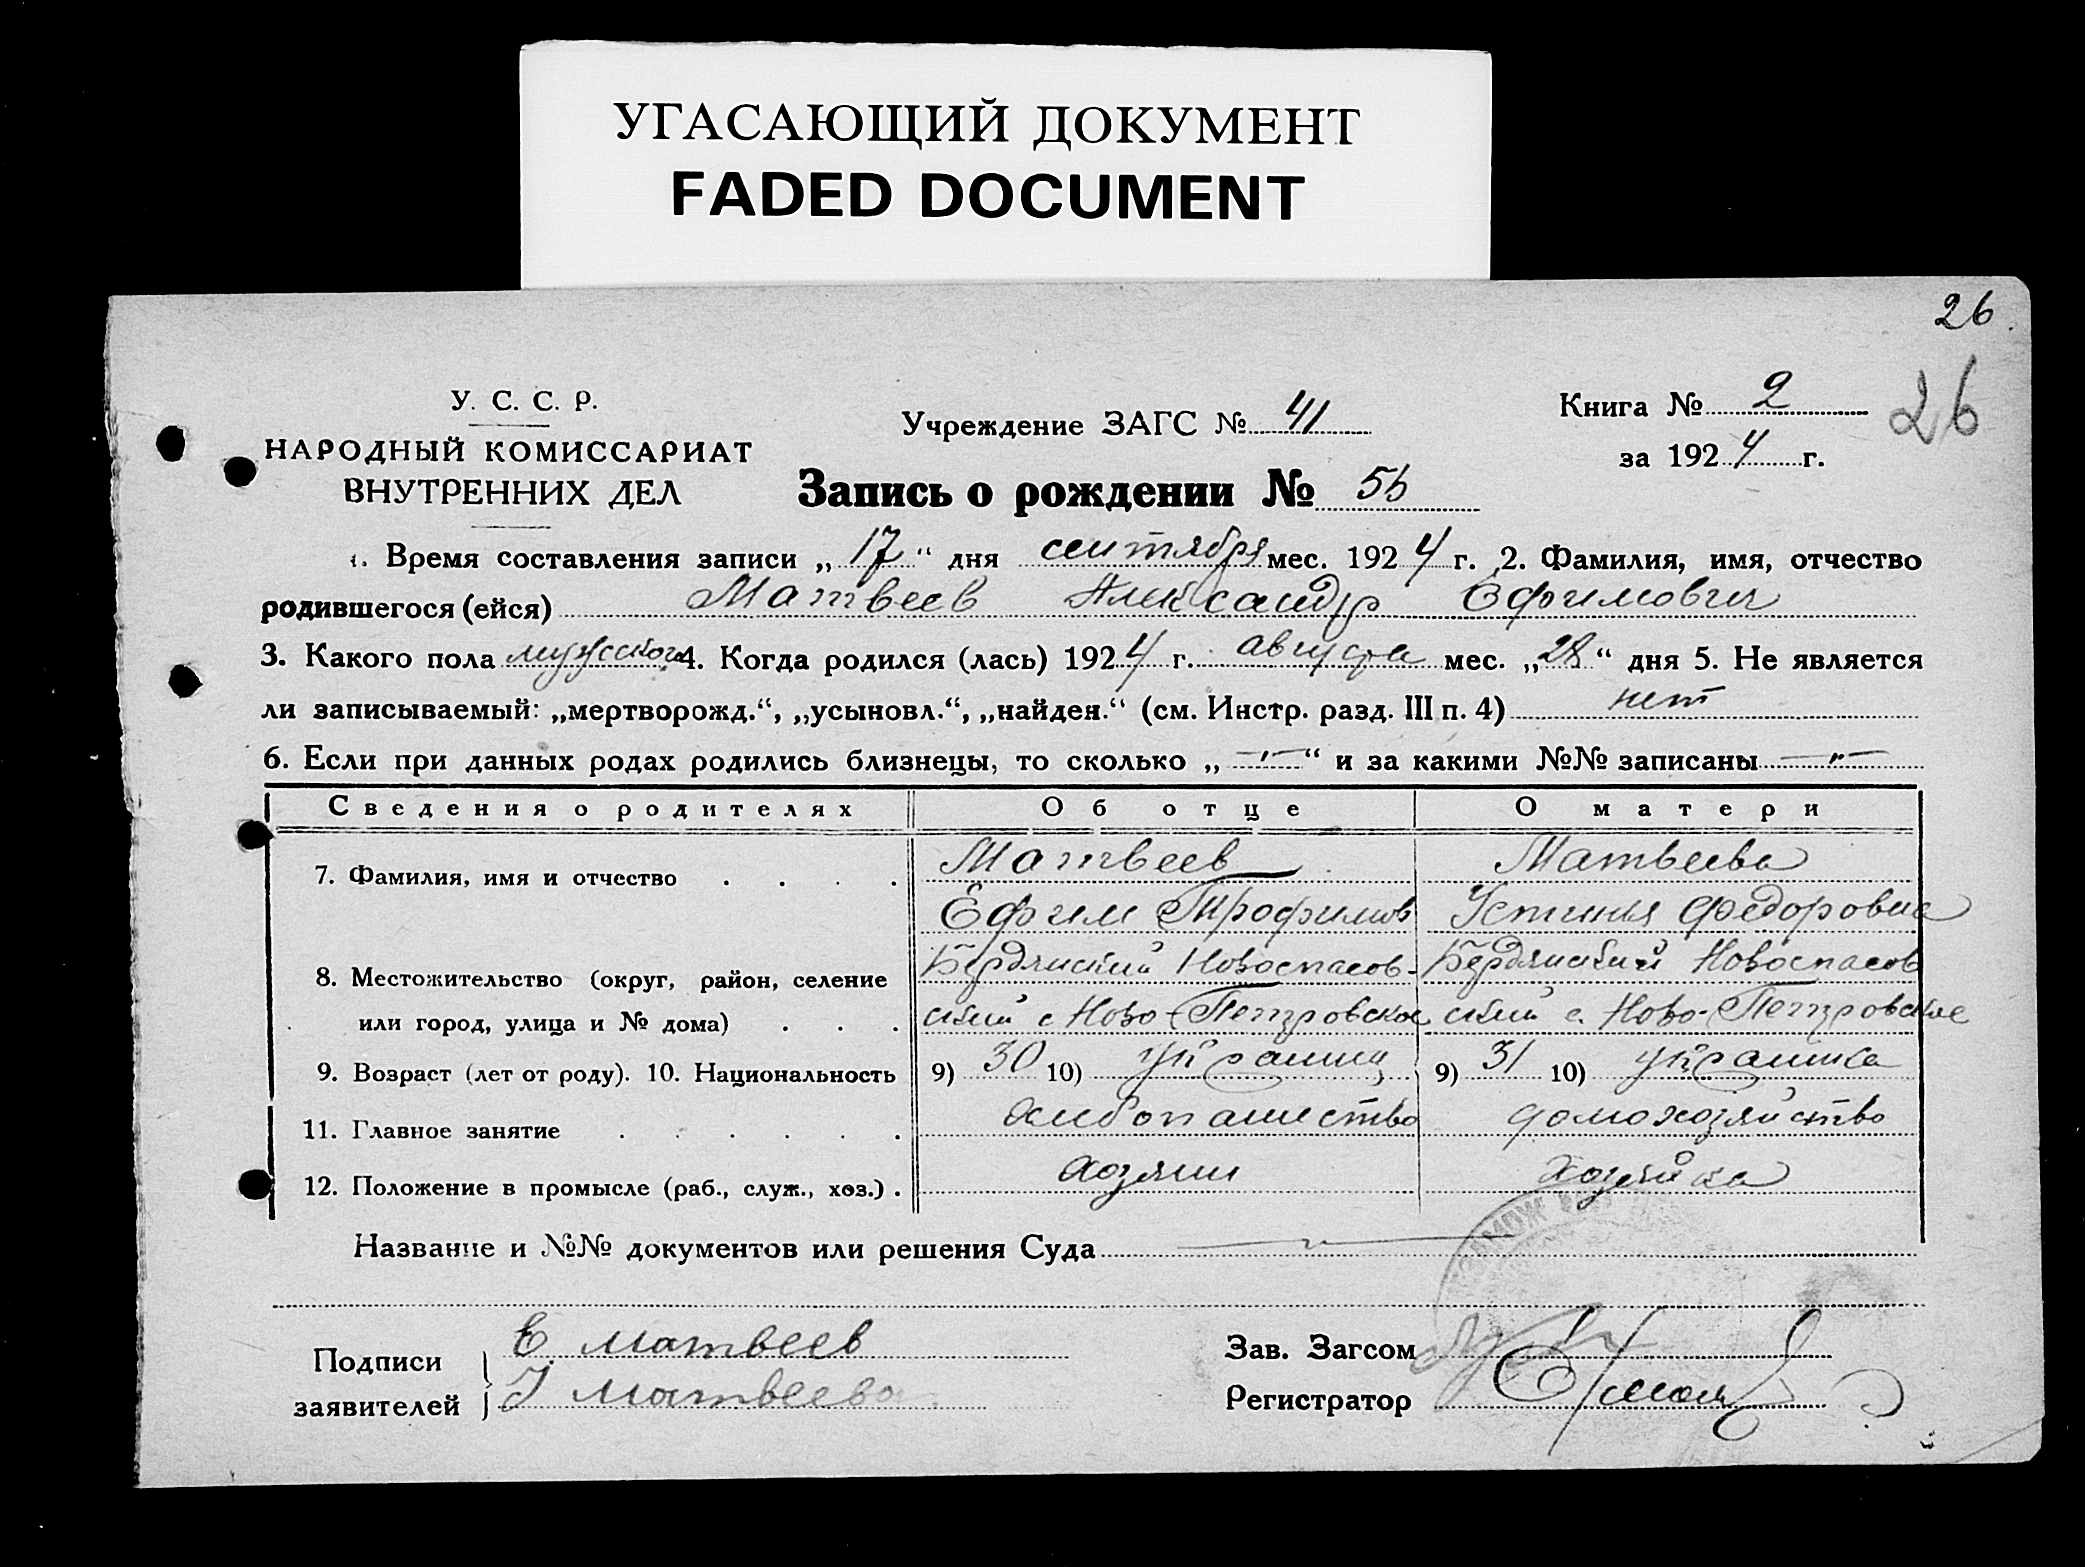 УГАСАЮЩИЙ ДОКУМЕНТ
FADED DOCUMENT
26
26
У. С. С. Р.
НАРОДНЫЙ КОМИССАРИАТ
ВНУТРЕННИХ ДЕЛ
Учреждение ЗАГС № 41
Книга № 2
за 1924 г.
Запись о рождении №
1. Время составления записи „17“ дня сентября мес. 1924 г. 2. Фамилия, имя, отчество
родившегося (ейся) Матвеев Александр Ефимович
3. Какого пола мужского 4. Когда родился (лась) 1924 г. августа мес. „28“ дня 5. Не является
ли записываемый: „мертворожд.“, „усыновл.“, „найден.“ (см. Инстр. разд. III п. 4) нет
6. Если при данных родах родились близнецы, то сколько „ —"— “ и за какими №№ записаны —"—
Сведения о родителях Об отце О матери
7. Фамилия, имя и отчество . . . . Матвеев Матвеева
Ефим Трофимов Устинья Федоровна
8. Местожительство (округ, район, селение Бердянский Новоспасов- Бердянский Новоспасов
или город, улица и № дома) . . . ский с Ново-Петровское ский с. Ново-Петровское
9. Возраст (лет от роду). 10. Национальность 9) 30 10) украинц 9) 31 10) украинка
11. Главное занятие . . . . . . хлебопашество домохозяйство
12. Положение в промысле (раб., служ., хоз.) . хозяин хозяйка
Название и №№ документов или решения Суда
Подписи
заявителей
Е. Матвеев
У Матвеева
Зав. Загсом
Регистратор